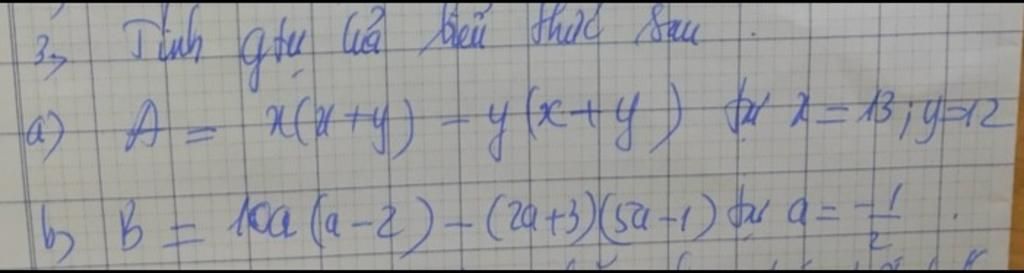 3, Tính gtrị của biểu thức sau.
a) A = x(x+y) - y(x+y) tại x = 13; y = 12
b, B = 10a(a-2) - (2a+3)(5a-1) tại a = -1/2.